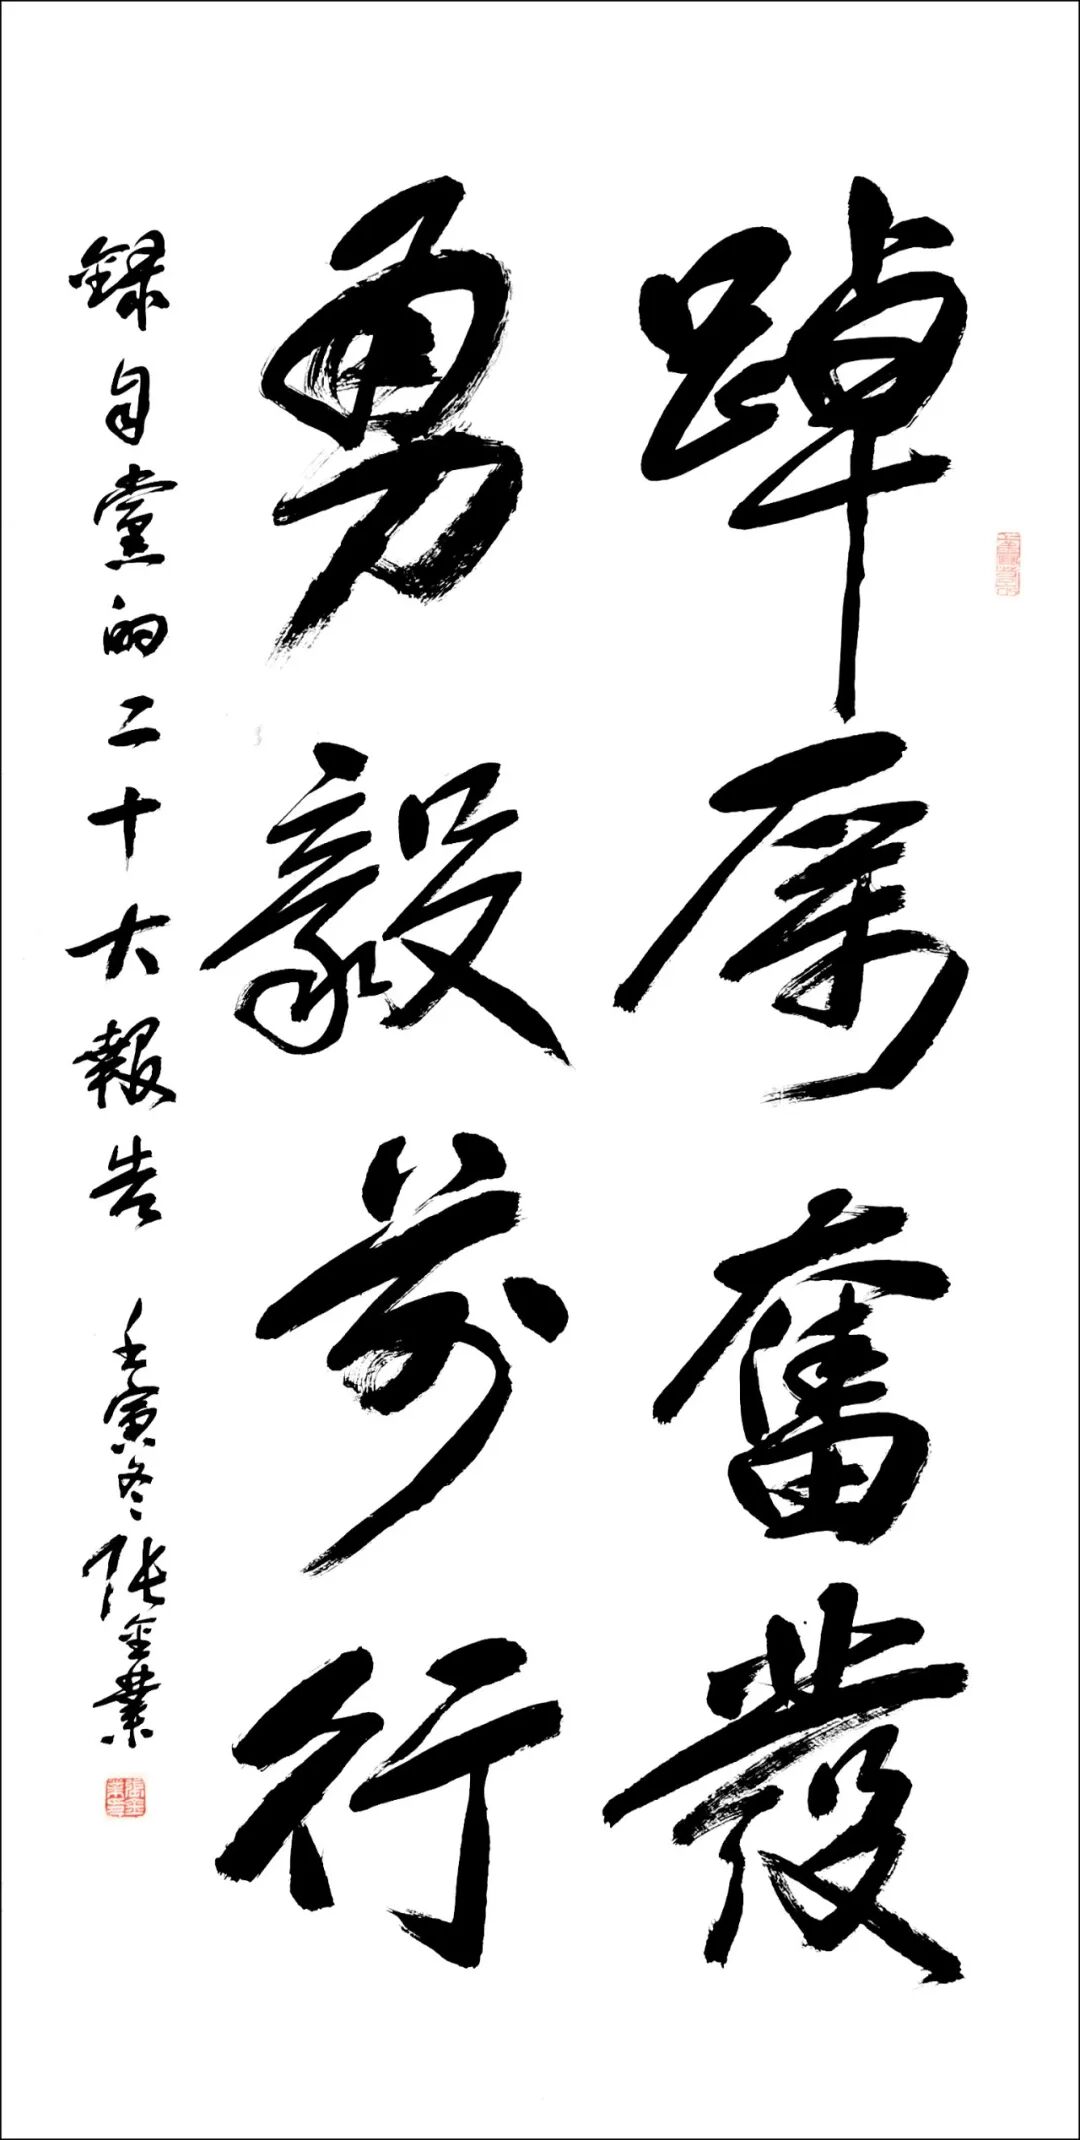 踔厲奮發
勇毅前行
録自黨的二十大報告 壬寅冬張金業